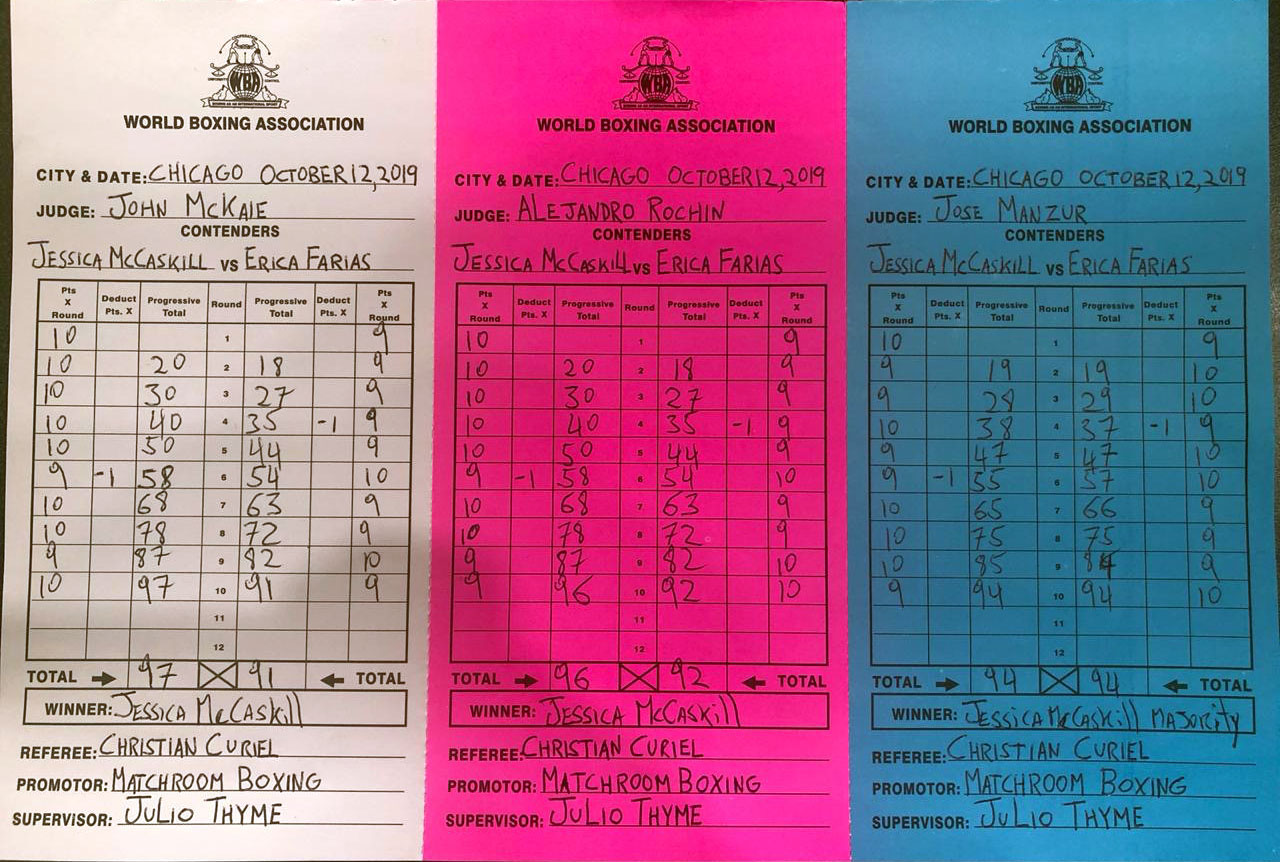 WBA
WORLD BOXING ASSOCIATION
CITY & DATE: CHICAGO OCTOBER 12, 2019
JUDGE: JOHN McKAIE
CONTENDERS
JESSICA McCASKILL VS ERICA FARIAS
Pts X Round Deduct Pts. X Progressive Total Round Progressive Total Deduct Pts. X Pts X Round
10 1 9
10 20 2 18 9
10 30 3 27 9
10 40 4 35 -1 9
10 50 5 44 9
9 -1 58 6 54 10
10 68 7 63 9
10 78 8 72 9
9 87 9 82 10
10 97 10 91 9
11
12
TOTAL 97 91 TOTAL
WINNER: JESSICA McCASKill
REFEREE: CHRISTIAN CURIEL
PROMOTOR: MATCHROOM BOXING
SUPERVISOR: JULIO THYME
WBA
WORLD BOXING ASSOCIATION
CITY & DATE: CHICAGO OCTOBER 12, 2019
JUDGE: ALEJANDRO ROCHIN
CONTENDERS
JESSICA McCASKILL VS ERICA FARIAS
Pts X Round Deduct Pts. X Progressive Total Round Progressive Total Deduct Pts. X Pts X Round
10 1 9
10 20 2 18 9
10 30 3 27 9
10 40 4 35 -1 9
10 50 5 44 9
9 -1 58 6 54 10
10 68 7 63 9
10 78 8 72 9
9 87 9 82 10
9 96 10 92 10
11
12
TOTAL 96 92 TOTAL
WINNER: JESSICA McCASKill
REFEREE: CHRISTIAN CURIEL
PROMOTOR: MATCHROOM BOXING
SUPERVISOR: JULIO THYME
WBA
WORLD BOXING ASSOCIATION
CITY & DATE: CHICAGO OCTOBER 12, 2019
JUDGE: JOSE MANZUR
CONTENDERS
JESSICA McCASKILL VS ERICA FARIAS
Pts X Round Deduct Pts. X Progressive Total Round Progressive Total Deduct Pts. X Pts X Round
10 1 9
9 19 2 19 10
9 28 3 29 10
10 38 4 37 -1 9
9 47 5 47 10
9 -1 55 6 57 10
10 65 7 66 9
10 75 8 75 9
10 85 9 84 9
9 94 10 94 10
11
12
TOTAL 94 94 TOTAL
WINNER: JESSICA McCASKill MAJORITY
REFEREE: CHRISTIAN CURIEL
PROMOTOR: MATCHROOM BOXING
SUPERVISOR: JULIO THYME